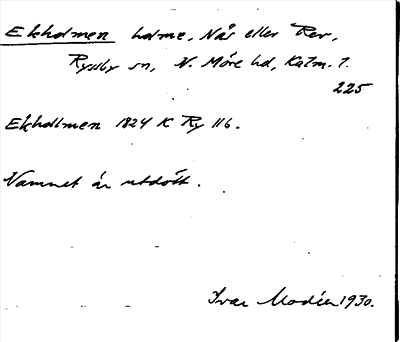 Ekholmen holme, Näs eller Rev,
Ryssby sn, N. Möre hd, Kalm. l.
225
Ekholmen 1824 K Ry 116.
Namnet är utdött.
Ivar Modéer 1930.